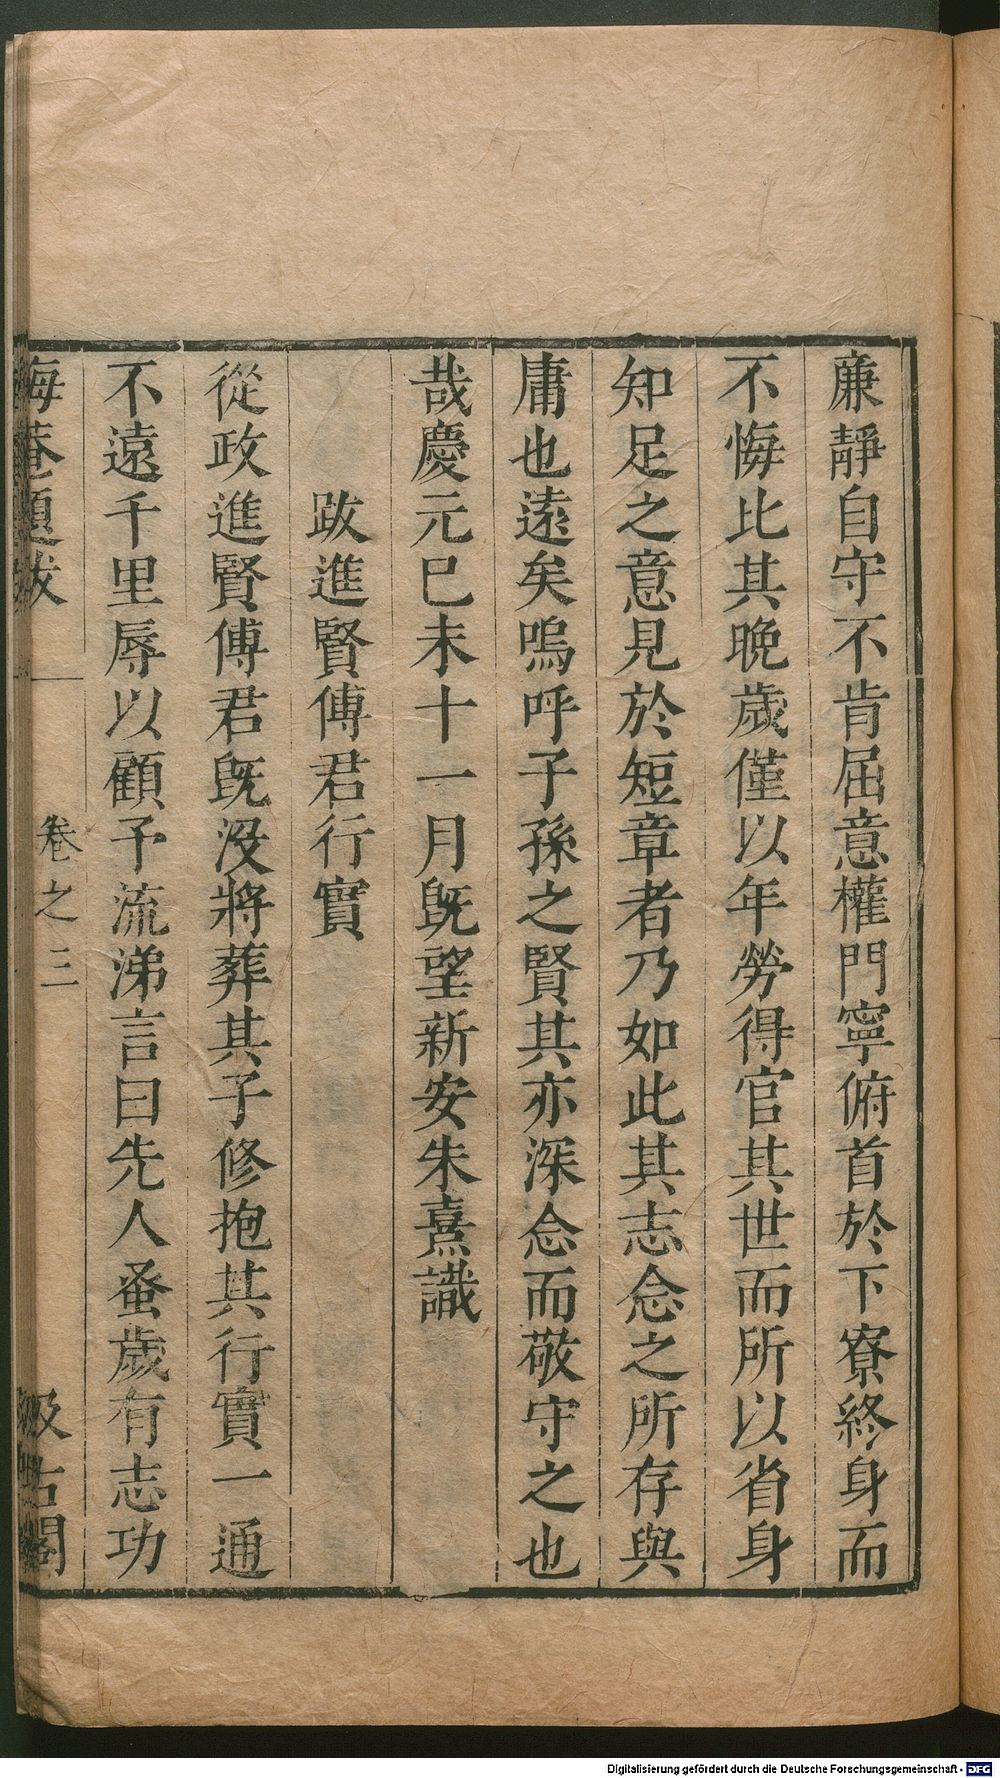 廉靜自守不肯屈意權門寧俯首於下寮終身而
不悔比其晩歲僅以年勞得官其世而所以省身
知足之意見於短章者乃如此其志念之所存與
庸也遠矣嗚呼子孫之賢其亦深念而敬守之也
哉慶元巳未十一月旣望新安朱熹識
跋進賢傅君行實
從政進賢傅君旣没將葬其子修抱其行實一通
不遠千里辱以顧予流涕言曰先人蚤歲有志功
晦菴題跋
卷之三
汲古閣
Digitalisierung gefördert durch die Deutsche Forschungsgemeinschaft - DFG